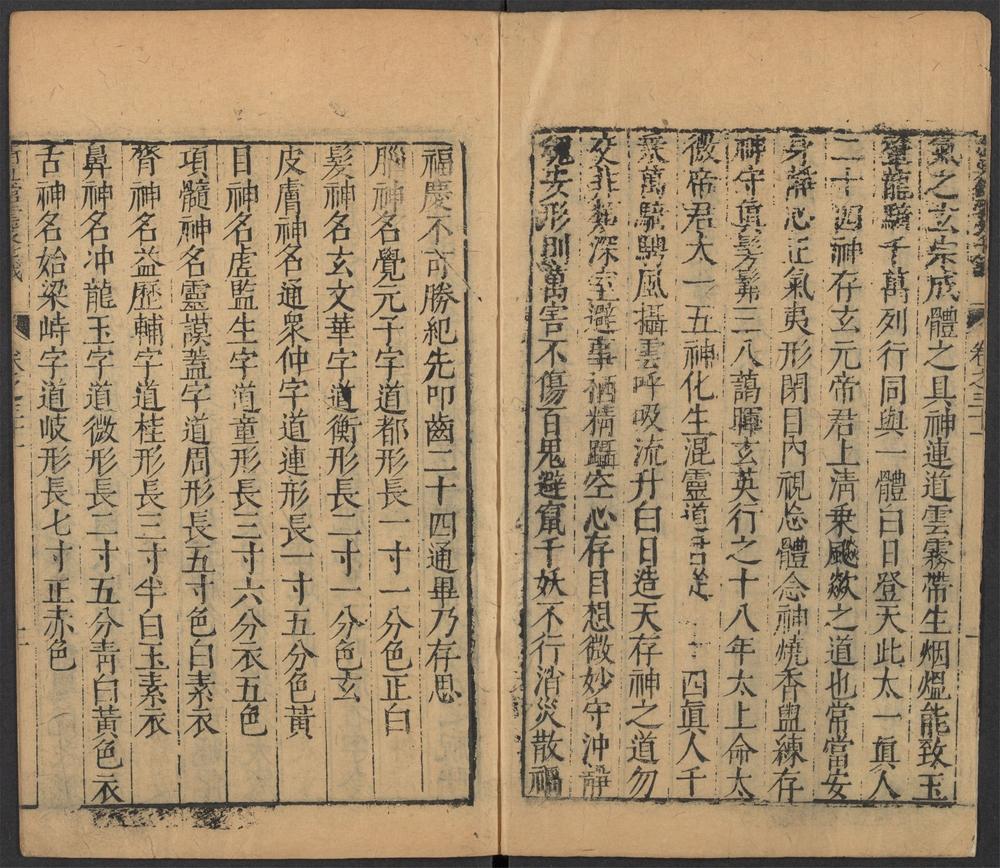 卷之三十一
氣之玄宗成體之具神連道雲霧帶生烟熅能致玉
輦龍驂千萬列行同與一體白日登天此太一眞人
二十四神存玄元帝君上清乗飈歘之道也常當安
身靜心正氣夷形閉目內視忘體念神燒香盥練存
神守眞髣髴三八藹暉玄英行之十八年太上命太
微帝君太一五神化生混靈道君 四眞人千
乗萬騎騁風攝雲呼吸流升白日造天存神之道勿
交非 深室避事栖精躡空心存目想微妙守沖靜
魂安形則萬害不傷百鬼避竄千妖不行消災散禍
福慶不可勝紀先叩齒二十四通畢乃存思
腦神名覺元子字道都形長一寸一分色正白
髮神名玄文華字道衡形長二寸一分色玄
皮膚神名通衆仲字道連形長一寸五分色黃
目神名虛監生字道童形長三寸六分衣五色
項髓神名靈謨蓋字道周形長五寸色白素衣
膂神名益歷輔字道桂形長三寸半白玉素衣
鼻神名冲龍玉字道微形長二寸五分靑白黃色衣
舌神名始梁峙字道岐形長七寸正赤色